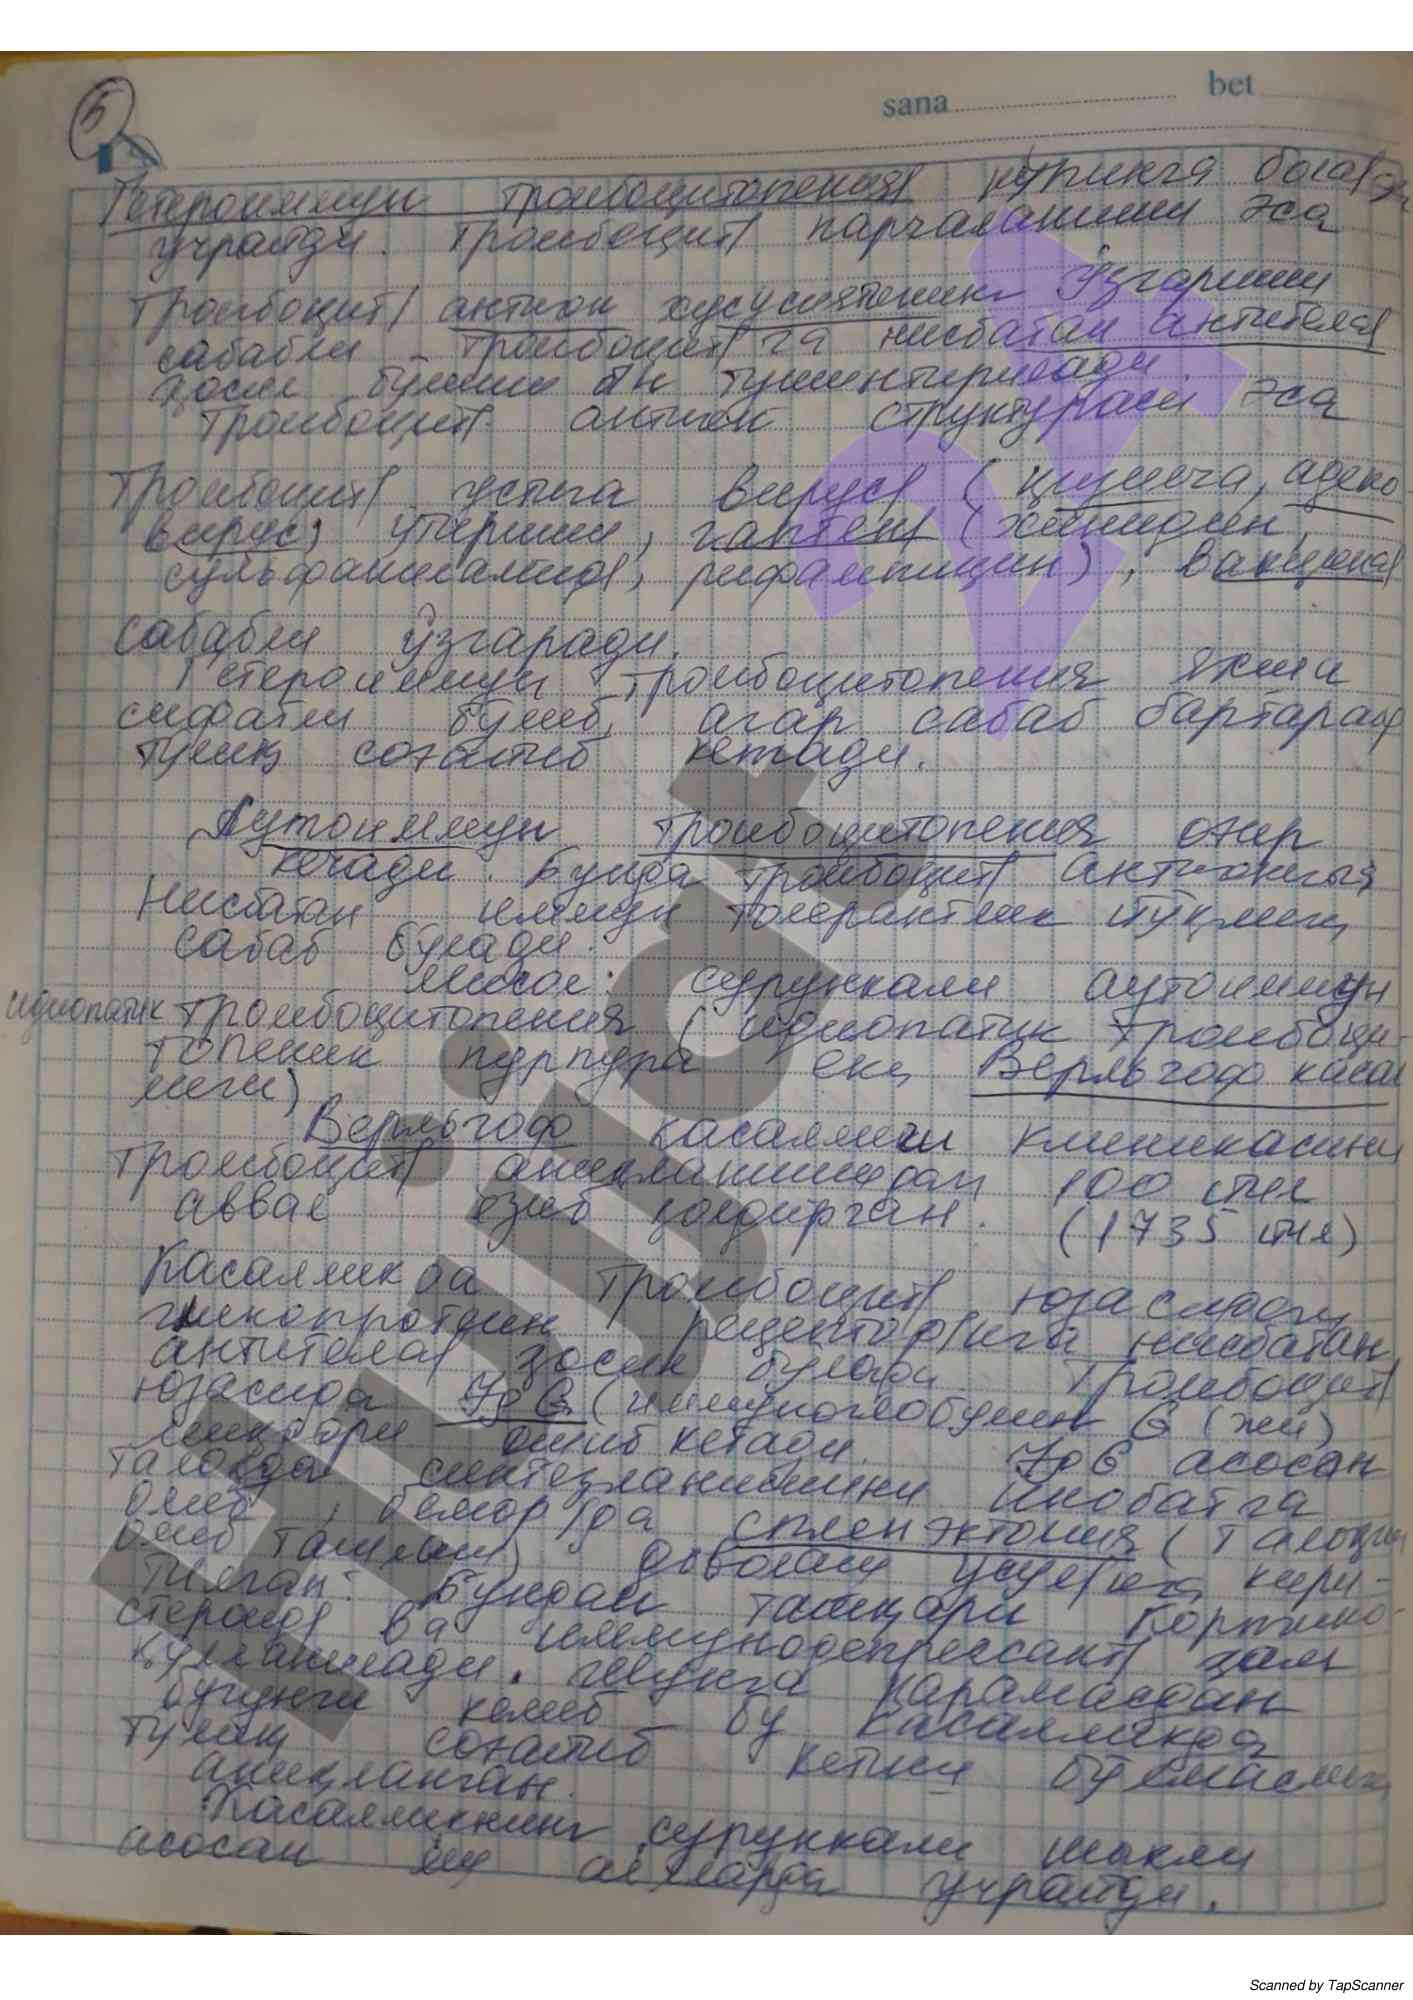 sana bet
5
Гетероиммун тромбоцитопения/ кўпинча бола/да
учрайди. Тромбоцит/ парчаланиши эса
тромбоцит/ антиген хусусиятининг ўзгариши
сабабли - тромбоцит/га нисбатан антитела/
ҳосил бўлиши б-н тушинтирилади.
Тромбоцит/ антиген структураси эса
тромбоцит/ устига вирус/ (қизилча, адено-
вирус) ўтириши, гаптен/ (хинидин,
сульфаниламид/, рифампицин), вакцина/
сабабли ўзгаради.
Гетероиммун тромбоцитопения яхши
сифатли бўлиб, агар сабаб бартараф
тўлиқ соғайиб кетади.
Аутоиммун тромбоцитопения оғир
кечади. Бунда тромбоцит/ антигенига
нисбатан иммун толерантлик йўқлиги
сабаб бўлади.
Мисол: сурункали аутоиммун
идиопатик тромбоцитопения (идиопатик тромбоци-
топеник пурпура ёки Верльгоф касал
лиги)
Верльгоф касаллиги клиникасини
тромбоцит/ аниқланишидан 100 йил
аввал ёзиб қолдирган. (1735 йил)
Касалликда тромбоцит/ юзасидаги
гликопротеин рецептор/ига нисбатан
антитела/ ҳосил бўлади. Тромбоцит/
юзасида Jg G (иммуноглобулин G (жи)
миқдори ошиб кетади. Jg G асосан
талоқда синтезланишини инобатга
олиб, бемор/да спленэктомия (талоқни
олиб ташлаш) даволаш усул/ига кири-
тилган. Бундан ташқари кортико-
стероид/ ва иммунодепрессант/ ҳам
қўлланилади. Шунга қарамасдан
бугунги келиб - бу касалликда
тўлиқ соғайиб кетиш бўлмаслиги
аниқланган.
Касалликнинг сурункали шакли
асосан аёлларда учрайди.
Hijjat
24
Scanned by TapScanner